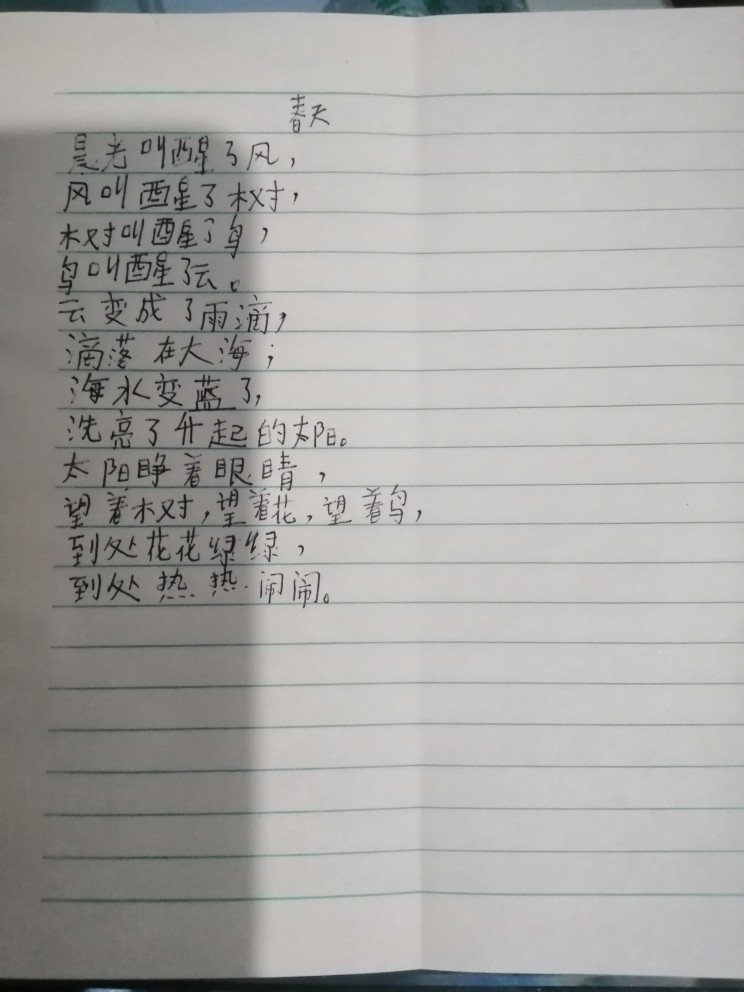 春天
晨光叫醒了风，
风叫醒了树，
树叫醒了鸟，
鸟叫醒了云。
云变成了雨滴，
滴落在大海；
海水变蓝了，
洗亮了升起的太阳。
太阳睁着眼睛，
望着树，望着花，望着鸟，
到处花花绿绿，
到处热热闹闹。